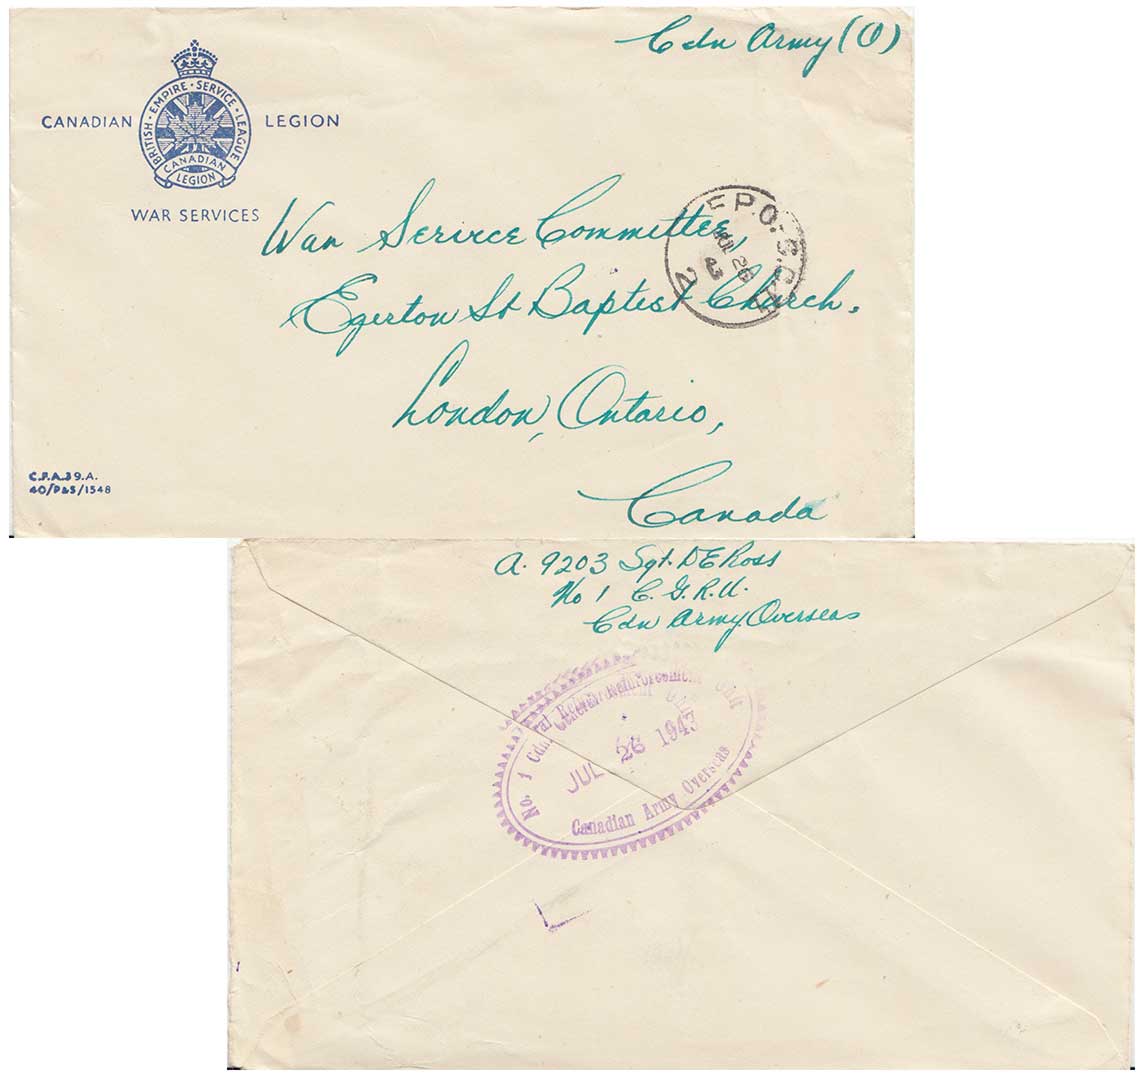 Cdn Army (O)
BRITISH · EMPIRE · SERVICE · LEAGUE
CANADIAN LEGION
CANADIAN
LEGION
WAR SERVICES
F.P.O. S.C.
JUL 26
43
2
War Service Committee,
Egerton St Baptist Church.
London, Ontario,
Canada
C.P.A.39.A.
40/P&S/1548
A. 9203 Sgt. D E Ross
No 1 C. G. R. U.
Cdn Army Overseas
No. 1 Cdn. General Reinforcement Unit
JUL 26 1943
Canadian Army Overseas